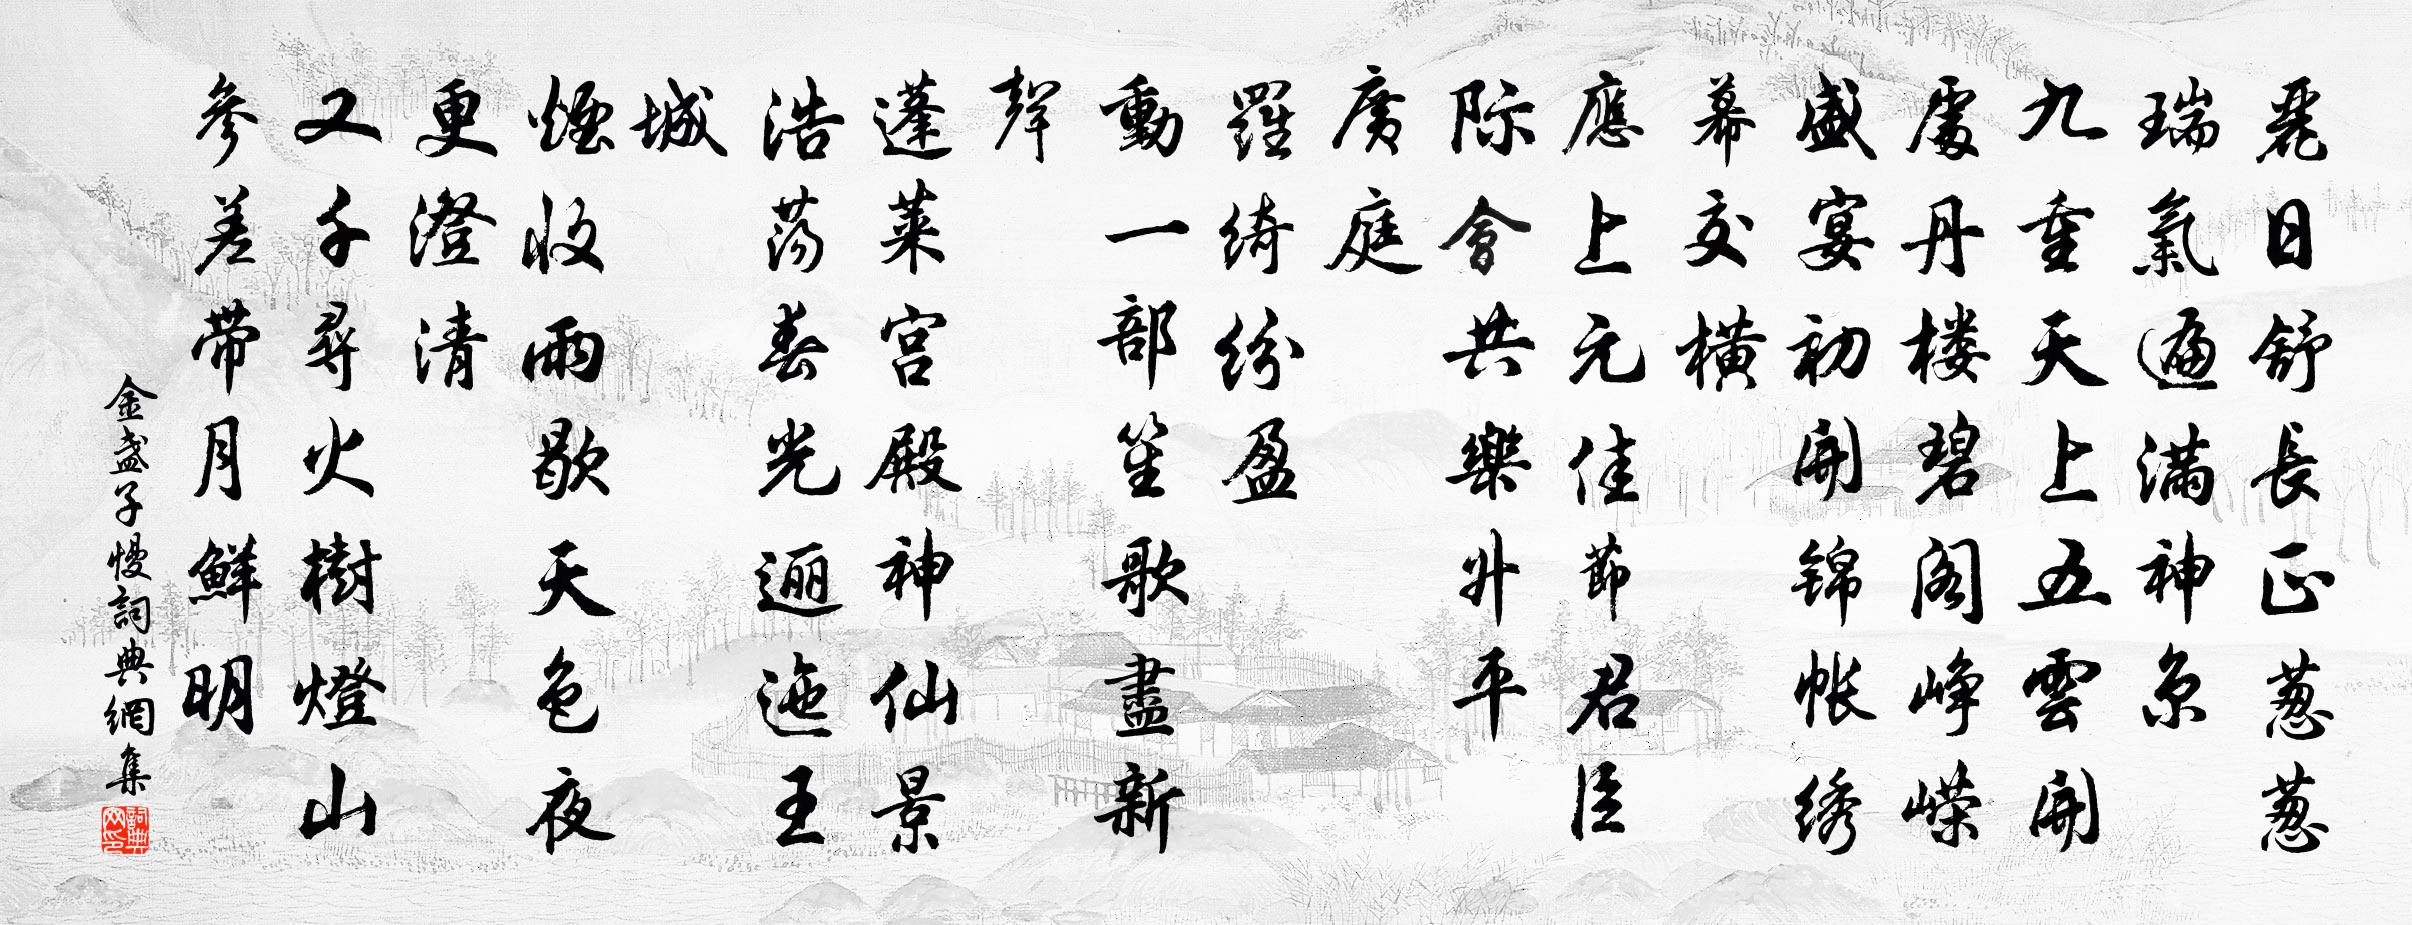 麗日舒長正葱葱
瑞氣遍滿神京
九重天上五雲開
處丹楼碧阁峥嵘
盛宴初開锦帐绣
幕交横
應上元佳節君臣
际會共樂升平
廣庭
羅绮纷盈
動一部笙歌盡新
聲
蓬莱宫殿神仙景
浩荡春光逦迤王
城
煙收雨歇天色夜
更澄清
又千尋火樹燈山
參差带月鲜明
金盏子慢詞典網集
詞典